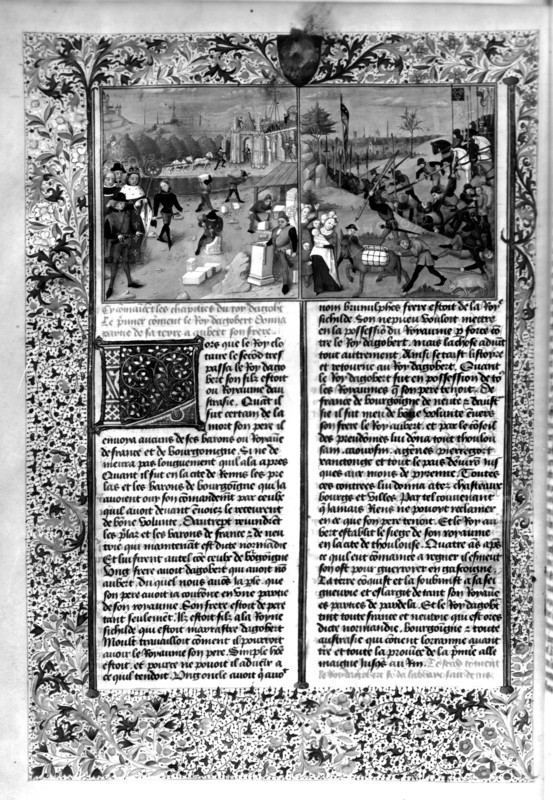 Cy commencent les chapitres du roy dagobt
Le primier coment le Roy dagobert donna
partie de sa terre a aubert son frere
ors que le Roy clo
taire le second tres
passa le Roy dago
bert son filz estoit
ou Royaume dau
strasie. Quat il
fut certain de la
mort son pere il
envoia aucuns de ses barons ou Royaue
de france et de Bourgoingne. Si ne de
moura pas longuement quil ala apres
Quant il fut en la cite de Reins les pre
las et les barons de bourgoigne qui ja
avoient ouy son comandemt par ceulx
quil avoit devant envoiez le receurent
de bone volunte. Dautrept revindret
les plaz et les barons de france et de neu
trie qui maintenat est dicte normadie
Et lui firent autel coe ceulx de bogoigne
Ung frere avoit dagobert qui avoit no
aubert. Du quel nous avos ja ple. que
son pere avoit ja courone en une partie
de son royaume. Son frere estoit de pere
tant seulemet. Il estoit filz a la Royne
sichilde qui estoit marrastre dagobert
Moult travailloit coment il pourroit
avoir le Royaume son pere. Simple hoe
estoit. et pource ne pouoit il advenir a
ce quil tendoit. Ung oncle avoit q avoit
nom brunulphes frere estoit de la Roye
sichilde. Son nepveu vouloit mettre
en la possessio du Royaume p force co
tre le Roy dagobert. mais la chose advit
tout autrement. Ainsi se taist listoire
et retourne au Roy dagobert. Quant
le Roy dagobert fut en possession de to
les Royaumes q son pere tenoit. De
france de bourgoigne de neutrie et daust
sie il fut meu de bone volunte envers
son frere le Roy aubert. et par le coseil
des preudomes lui dona tout thoulou
sain. caoursin. agenes. pierregort
xanctonge et tout le pais devers jus
ques aux mons de pirenne. Toutes
ces contrees lui donna avec chasteaux
bourgs et Villes. Par tel convenant
q jamais Riens ne pouoit reclamer
en ce que son pere tenoit. Et le Roy au
bert establit le siege de son royaume
en la cite de thoulouse. Quatre as aps
ce quil eut comance a regner il esmeut
son ost pour guerroier en gascoingne.
La terre coquist et la soubmist a sa sei
gneurie et eslargit de tant son Royaue
es parties de pardela. Et le Roy dagobt
tint toute france et neutrie qui est ores
dicte normandie. Bourgoigne et toute
austrasie qui cotient lorranne avant
tire et toute la prouice de la pmie alle
maigne jusqs au Rin. Le secod coment